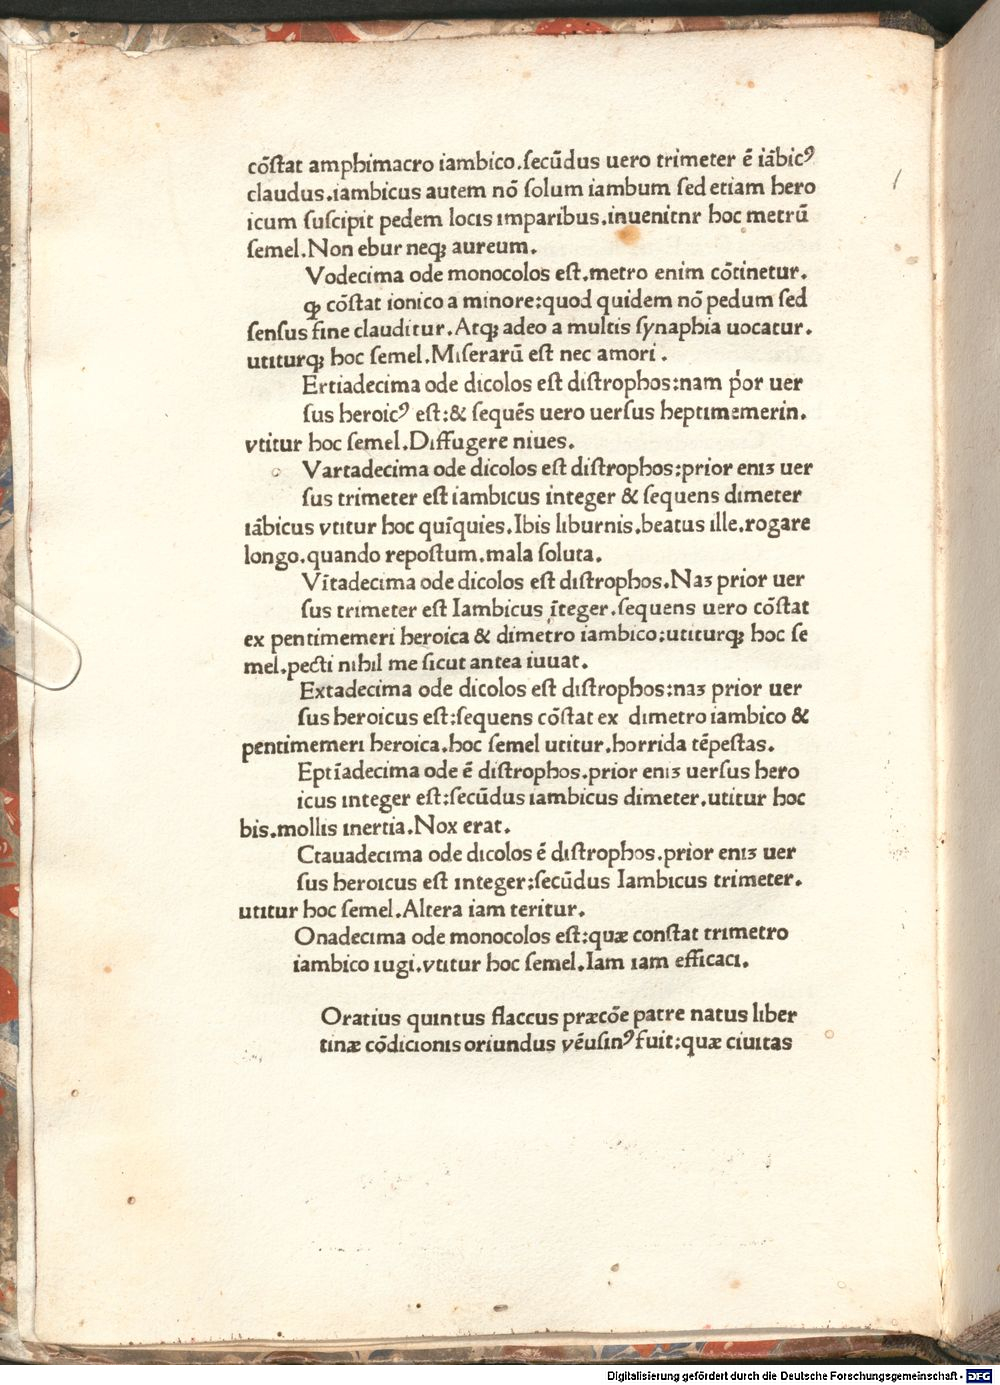 cōſtat amphimacro iambico.ſecūdus uero trimeter ē iābicꝰ
claudus.iambicus autem nō ſolum iambum ſed etiam hero
icum ſuſcipit pedem locis imparibus.inuenitnr hoc metrū
ſemel.Non ebur neqꝫ aureum.
Vodecima ode monocolos eſt.metro enim cōtinetur.
ꝙ cōſtat ionico a minore:quod quidem nō pedum ſed
ſenſus fine clauditur.Atqꝫ adeo a multis ſynaphia uocatur.
utiturqꝫ hoc ſemel.Miſerarū eſt nec amori.
Ertiadecima ode dicolos eſt diſtrophos:nam p̓or uer
ſus heroicꝰ eſt:& ſequēs uero uerſus heptimemerin.
vtitur hoc ſemel.Diffugere niues.
Vartadecima ode dicolos eſt diſtrophos:prior eniꝫ uer
ſus trimeter eſt iambicus integer & ſequens dimeter
iābicus vtitur hoc quīquies.Ibis liburnis.beatus ille.rogare
longo.quando repoſtum.mala ſoluta.
Vītadecima ode dicolos eſt diſtrophos.Naꝫ prior uer
ſus trimeter eſt Iambicus īteger.ſequens uero cōſtat
ex pentimemeri heroica & dimetro iambico:utiturqꝫ hoc ſe
mel.pecti nihil me ſicut antea iuuat.
Extadecima ode dicolos eſt diſtrophos:naꝫ prior uer
ſus heroicus eſt:ſequens cōſtat ex dimetro iambico &
pentimemeri heroica.hoc ſemel utitur.horrida tēpeſtas.
Eptīadecima ode ē diſtrophos.prior eniꝫ uerſus hero
icus integer eſt:ſecūdus iambicus dimeter.utitur hoc
bis.mollis inertia.Nox erat.
Ctauadecima ode dicolos ē diſtrophos.prior eniꝫ uer
ſus heroicus eſt integer:ſecūdus Iambicus trimeter.
utitur hoc ſemel.Altera iam teritur.
Onadecima ode monocolos eſt:quæ conſtat trimetro
iambico iugi.vtitur hoc ſemel.Iam iam efficaci.
Oratius quintus flaccus præcōe patre natus liber
tinæ cōdicionis oriundus vēuſinꝰ fuit:quæ ciuitas
Digitalisierung gefördert durch die Deutsche Forschungsgemeinschaft - DFG